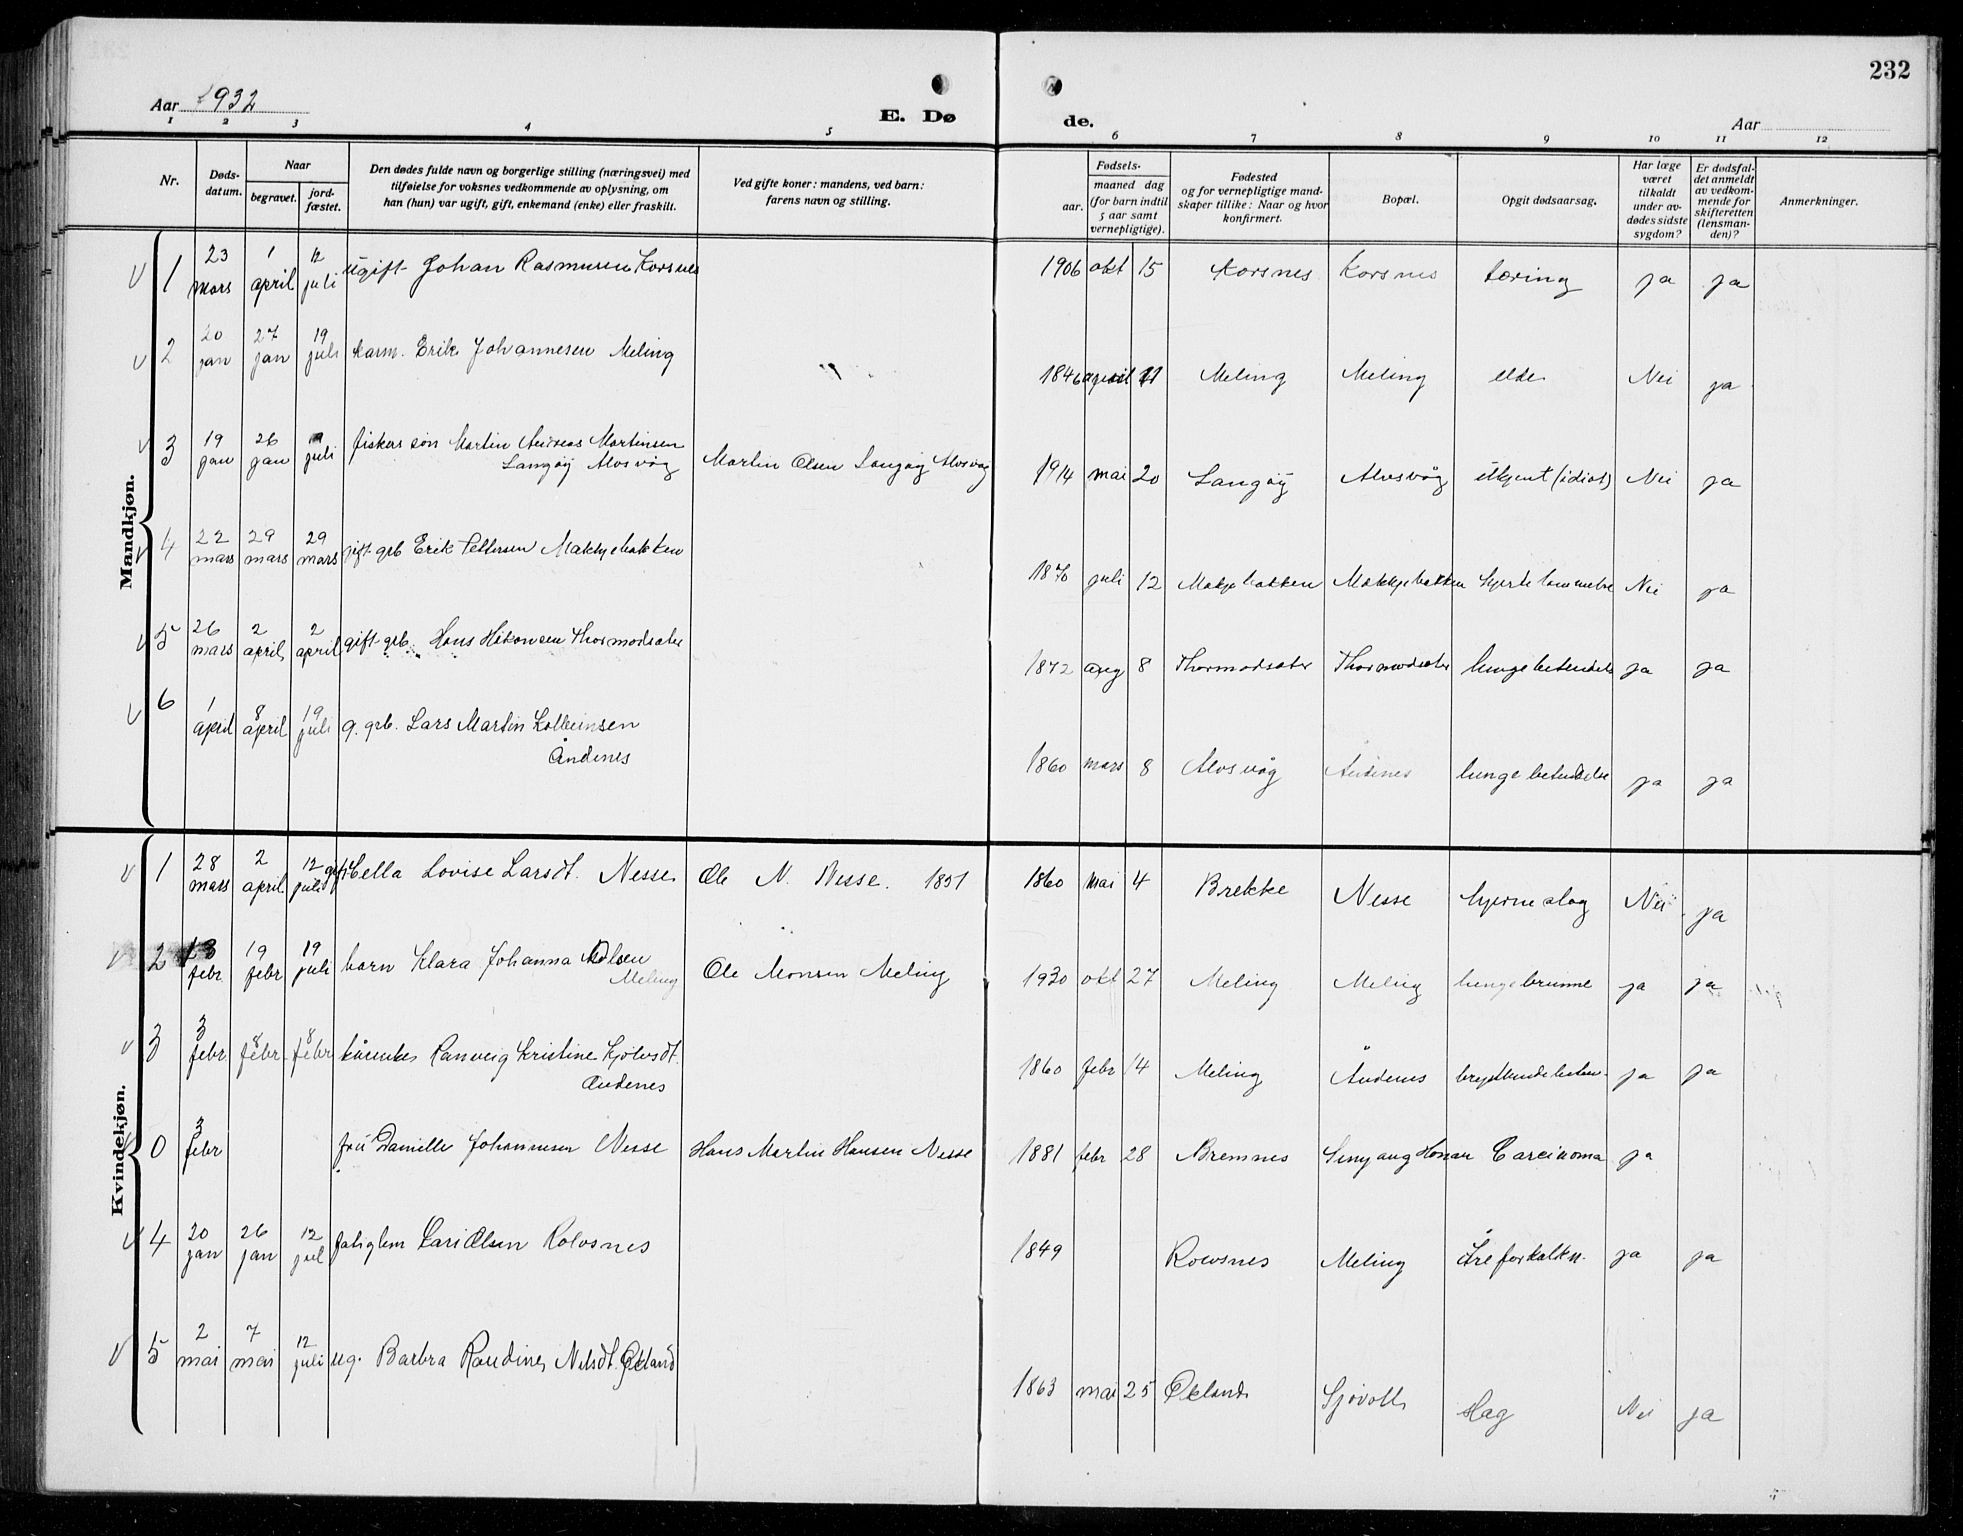 232
Aar 1932
E. Døde.
Aar
1 2 3 4 5 6 7 8 9 10 11 12
Nr.
Døds-
datum.
Naar
begravet.
jord-
fæstet.
Den dødes fulde navn og borgerlige stilling (næringsvei) med
tilføielse for voksnes vedkommende av oplysning, om
han (hun) var ugift, gift, enkemand (enke) eller fraskilt.
Ved gifte koner: mandens, ved barn:
farens navn og stilling.
Fødsels-
aar.
maaned dag
(for barn indtil
5 aar samt
vernepligtige).
Fødested
og for vernepligtige mand-
skaper tillike: Naar og hvor
konfirmert.
Bopæl.
Opgit dødsaarsag.
Har læge
været
tilkaldt
under av-
dødes sidste
sygdom?
Er dødsfal-
det anmeldt
av vedkom-
mende for
skifteretten
(lensman-
den)?
Anmerkninger.
Mandkjøn.
1 23 mars 1 april 12 juli ugift Johan Rasmusen Korsnes 1906 okt 15 Korsnes Korsnes tæring ja ja
2 20 jan 27 jan 19 juli karm. Erik Johannesen Meling 1846 april 11 Meling Meling elde Nei ja
3 19 jan 26 jan juli fiskar søn Martin Andreas Martinsen
Langøy Alvsvåg Martin Olsen Langøy Alvsvåg 1914 mai 20 Langøy Alvsvåg ukjent (idiot) Nei ja
4 22 mars 29 mars 29 mars gift grb Erik Pettersen Makkjebakken 1870 juli 12 Makjebakken Makkjebakken hjerte lammelse Nei ja
5 26 mars 2 april 2 april gift grb. Hans Håkonsen Thormodsæter 1872 aug 8 Thormodsæter Thormodsæter lungebetendels ja ja
6 1 april 8 april 19 juli g. grb. Lars Martin Kolbeinsen
Åndenes 1860 mars 8 Alvsvåg Åndenes lungebetendelse ja ja
Kvindekjøn.
1 28 mars 2 april 12 juli gift Hella Lovise Larsdt. Nesse Ole N. Nesse. 1851 1860 mai 4 Brekke Nesse hjerneslag Nei ja
2 13 febr 19 febr 19 juli barn Klara Johanna Olsen
Meling Ole Monsen Meling 1930 okt 27 Meling Meling lungebrunne ja ja
3 3 febr 8 febr 8 febr kårenke Ranveig Kristine Kjølvsdt.
Åndenes 1860 febr 14 Meling Åndenes ja ja
0 3 febr frü Danielle Johannesen Nesse Hans Martin Hansen Nesse 1881 febr 28 Bremnes Sinyang Honan Carcinoma ja
4 20 jan 26 jan 12 jul fatiglem Kari Olsen Rolvsnes 1849 Rolvsnes Meling Åreforkalkn. ja ja
5 2 mai 7 mai 12 juli ug. Barbra Raudine Nilsdt. Økland 1863 mai 25 Økland Sjøvoll slag Nei ja